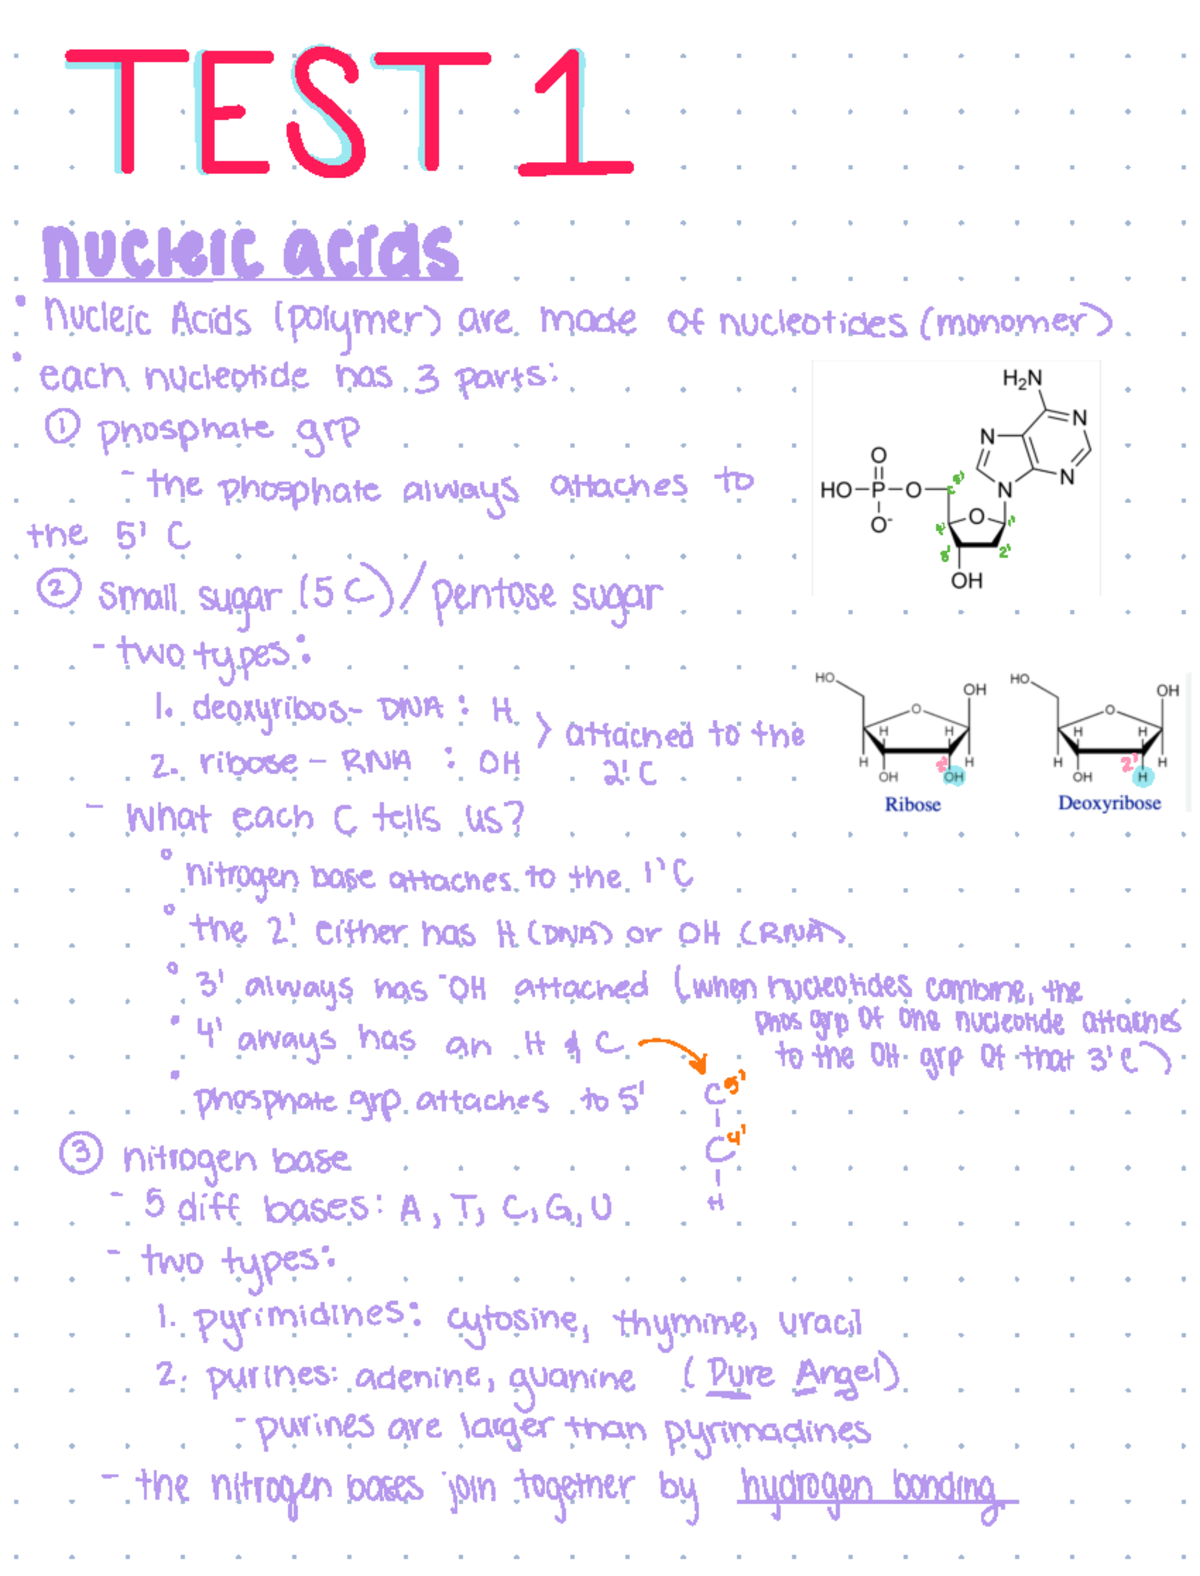 TEST 1
nucleic acids
• Nucleic Acids (polymer) are made of nucleotides (monomer)
• each nucleotide has 3 parts:
① phosphate grp
- the phosphate always attaches to
the 5' C
H₂N
N
N
N
N
O
HO-P-O
O⁻
5'
O
4'
1'
3'
2'
OH
② small sugar (5 C) / pentose sugar
- two types:
1. deoxyribos - DNA : H
2. ribose - RNA : OH
} attached to the
2' C
HO
OH
O
H
H
H
H
OH
2'
OH
Ribose
HO
OH
O
H
H
H
H
OH
2'
H
Deoxyribose
- What each C tells us?
° nitrogen base attaches to the 1' C
° the 2' either has H (DNA) or OH (RNA)
° 3' always has -OH attached (when nucleotides combine, the
phos grp of one nucleotide attaches
to the OH grp of that 3' C)
• 4' aways has an H & C
• phosphate grp attaches to 5'
C 5'
C 4'
H
③ nitrogen base
- 5 diff bases: A, T, C, G, U
- two types:
1. pyrimidines: cytosine, thymine, uracil
2. purines: adenine, guanine (Pure Angel)
- purines are larger than pyrimadines
- the nitrogen bases join together by hydrogen bonding